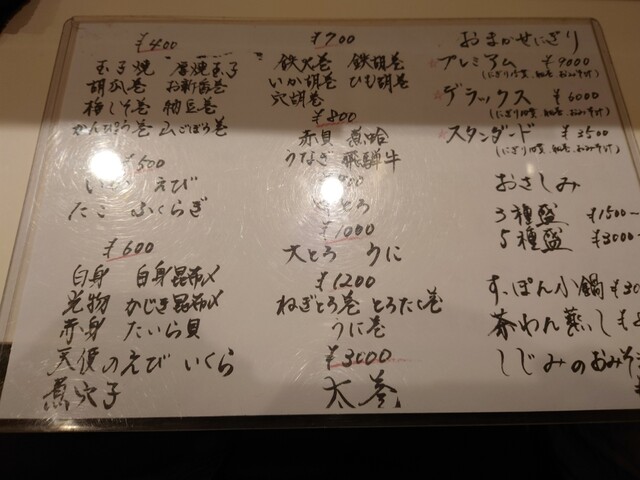 ¥400
玉子焼 厚焼玉子
胡瓜巻 お新香巻
梅しそ巻 納豆巻
かんぴょう巻 山ごぼう巻
¥500
いか えび
たこ ふくらぎ
¥600
白身 白身昆布〆
光物 かじき昆布〆
赤身 たいら貝
天使のえび いくら
煮穴子
¥700
鉄火巻 鉄胡巻
いか胡巻 ひも胡巻
穴胡巻
¥800
赤貝 煮蛤
うなぎ 飛騨牛
とろ
¥1000
大とろ うに
¥1200
ねぎとろ巻 とろたく巻
うに巻
¥3000
太巻
おまかせにぎり
プレミアム ¥9000
デラックス ¥6000
スタンダード ¥3500
おさしみ
3種盛 ¥1500〜
5種盛 ¥3000〜
すっぽん小鍋
茶わん蒸し
しじみのおみそ